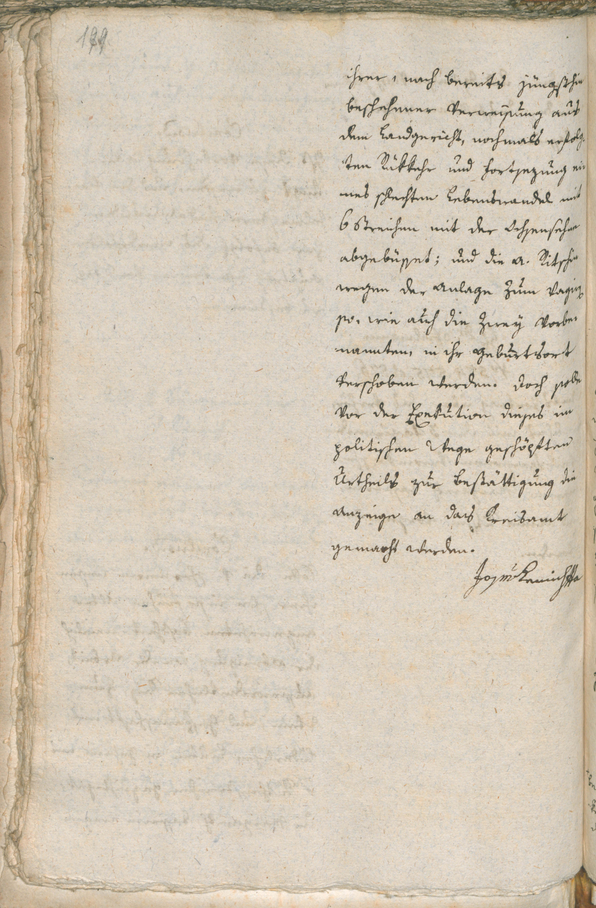 199
ihrer, nach bereits jüngsthin
beschehener Verweisung aus
dem Landgericht, nochmals erfolg-
ten Rükkehr und Fortsezung ei-
nes schlechten Lebenswandel mit
6 Streichen mit der Ochsensehne
abgebüsset; und die A. Nitsch
wegen der Anlage zum
wie auch die zwey Vorbe-
nannten, in ihr Geburtsort
verschoben werden. Doch solle
vor der Exekution dieses im
politischen Wege geschöpften
Urtheils zur Bestättigung die
Anzeige an das Kreisamt
gemacht werden.